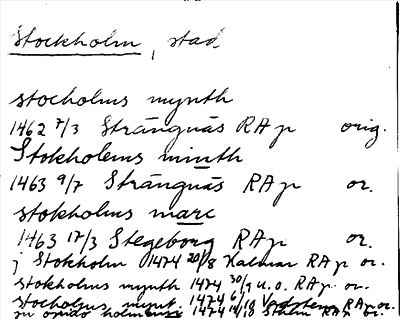 Stockholm, stad
stocholms mynth
1462 7/3 Strängnäs RAp orig.
Stokholms minth
1463 9/7 Strängnäs RAp or.
stokholms marc
1463 17/3 Stegeborg RAp or.
j Stokholm 1474 20/8 Kalmar RAp or.
stokholms mynth 1474 30/9 u.o. RAp or.
stocholms mynt. 1474 6/10 Vadstena RAp or.
holmensi 1474 14/10 Sthlm RAp or.